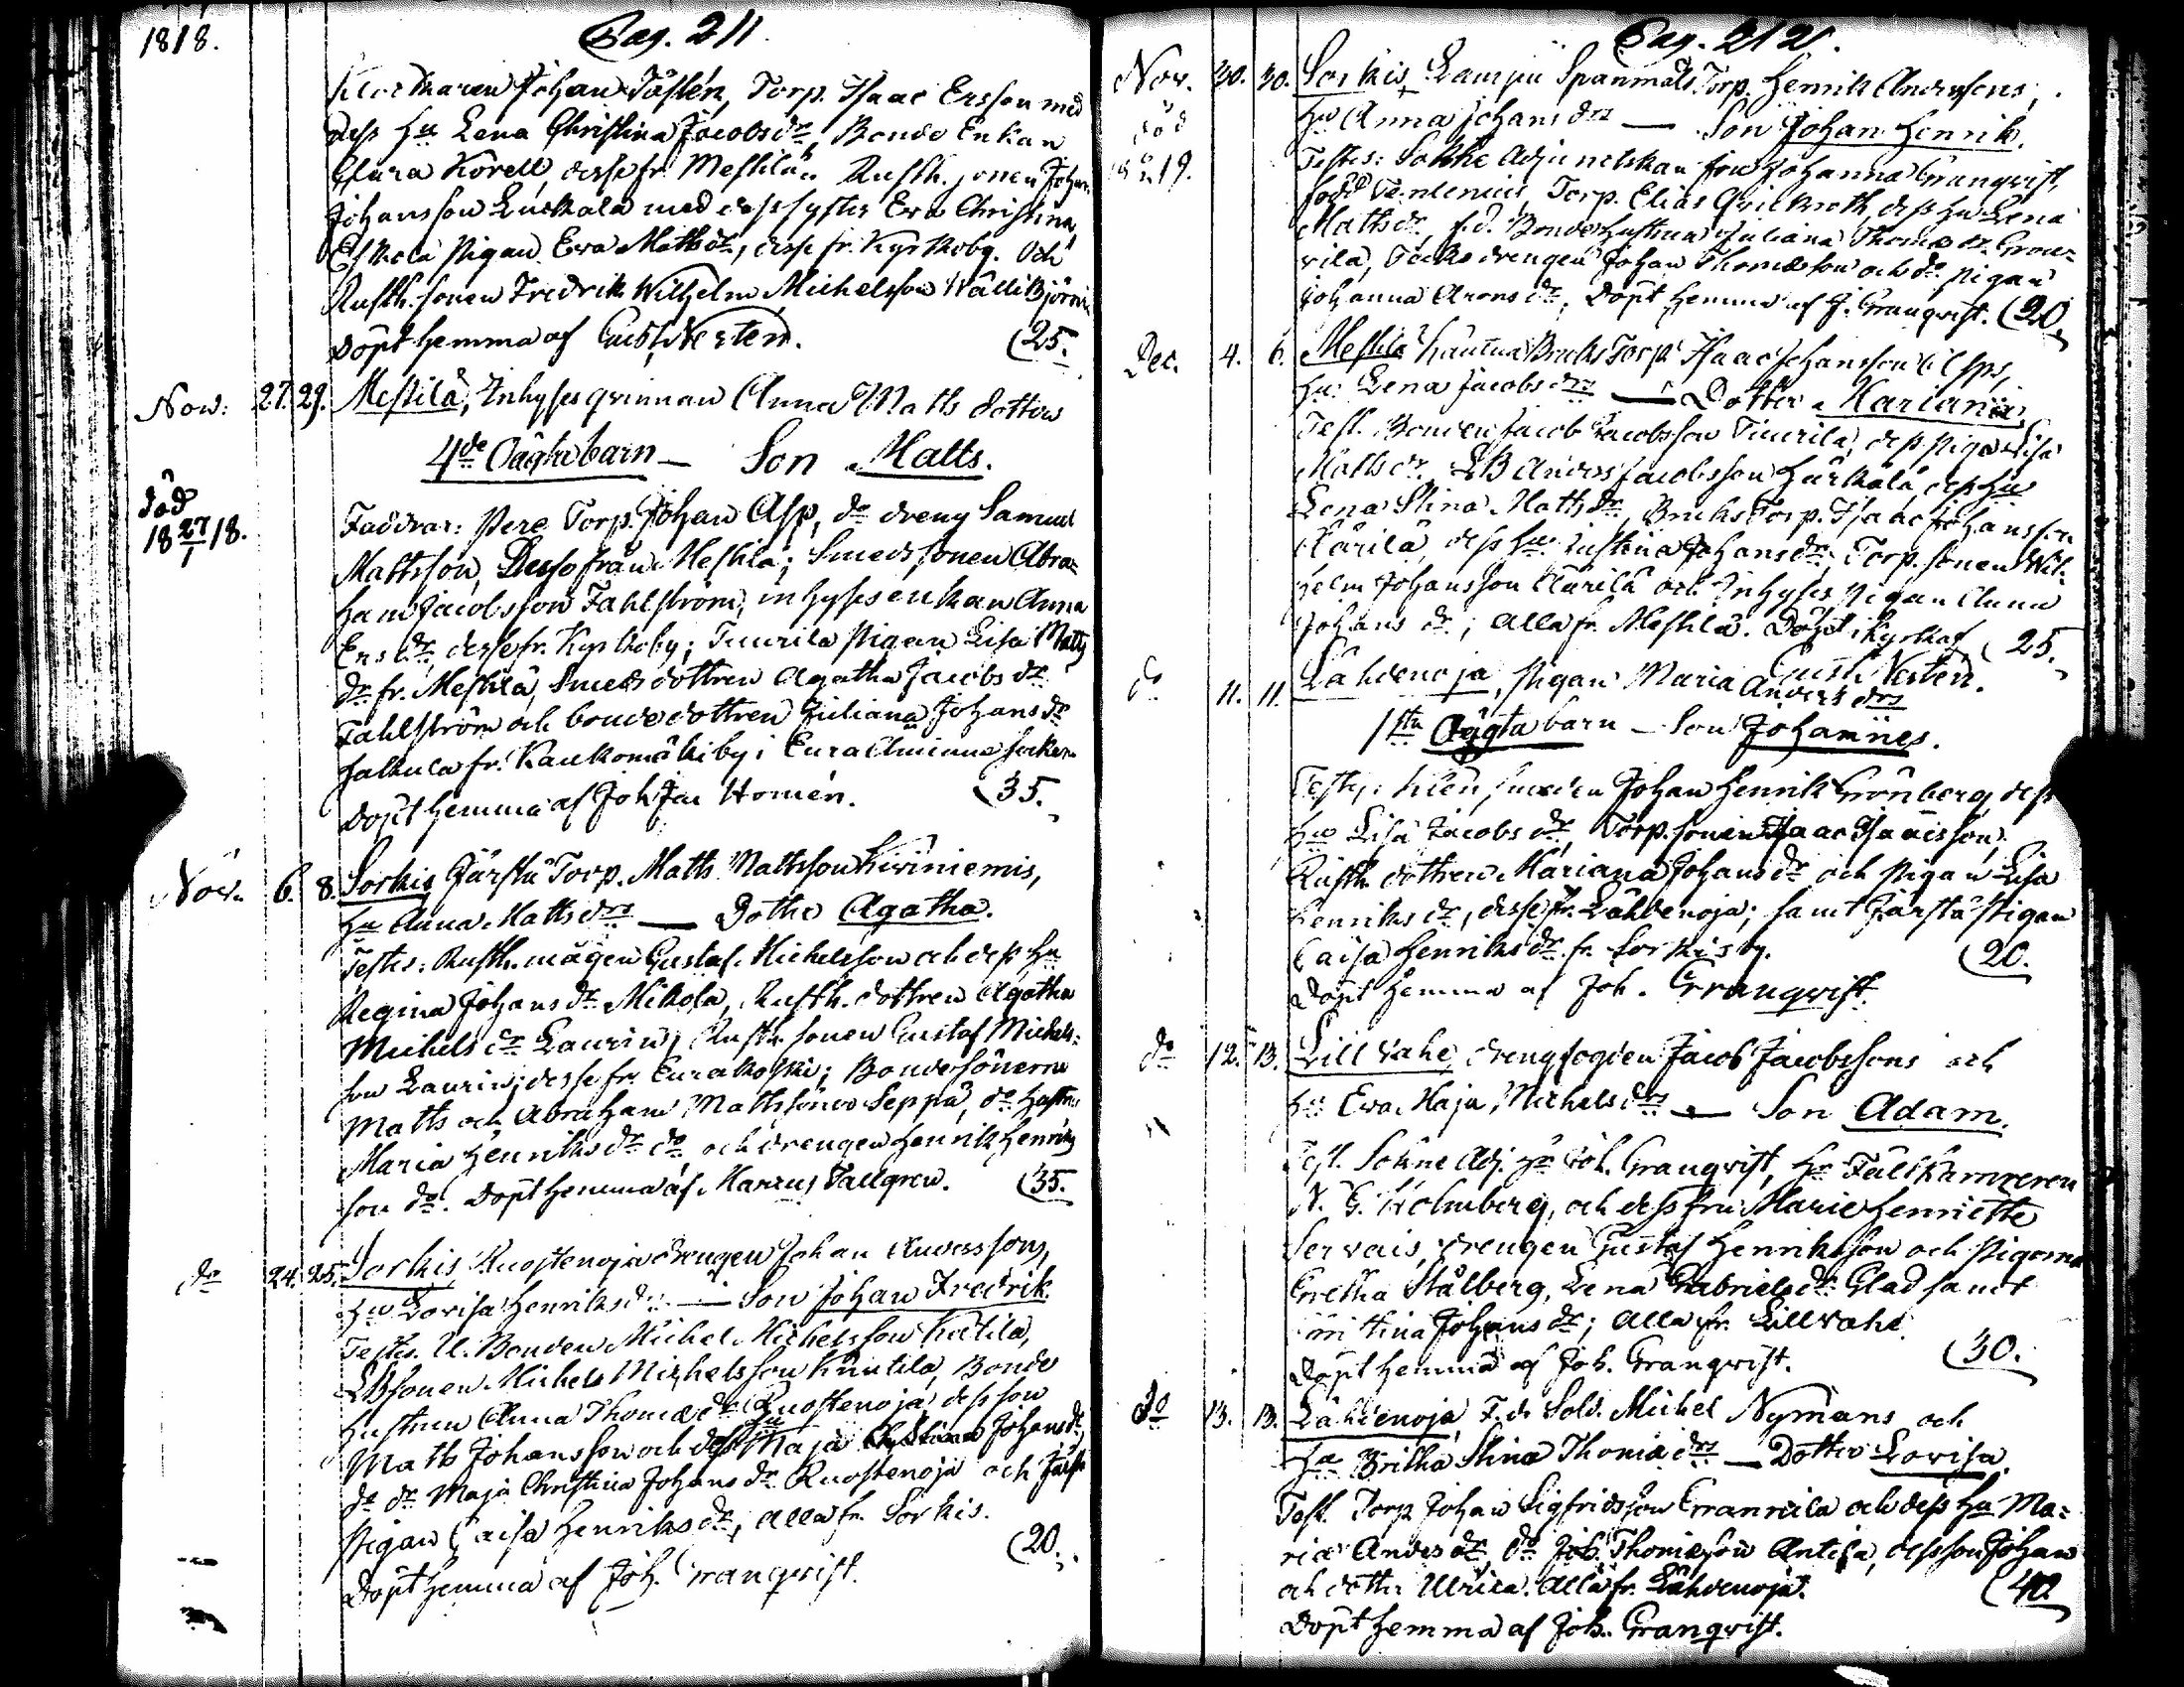 1818.
Pag. 211.
Klockaren Johan Täflén, Torp. Isaac Ersson med
dess Hu Lena Christina Jacobsdr, Bonde Enkan
Clara Korell, desse fr. Mestilä. Rusth. sonen Johan
Johansson Luckala med dess syster Eva Christina,
Eskola pigan Eva Mattsdr, desse fr. Kyrkoby. Och
Rusth. sonen Fredrik Wilhelm Michelsson Wälli
Döpt hemma af Nestén. (25.
Nov: 27. 29. Mestilä, Inhyses qvinnan Anna Matts dotters
4de Oägta barn — Son Matts.
död
18 27/1 18.
Faddrar: Pere Torp. Johan Asp, do dreng Samuel
Mattsson, Desse från Mestilä; Smeds sonen Abra=
ham Jacobsson Fahlström, inhyses enkan Anna
Ersdr, desse fr. Kyrkoby; Tuurila pigan Lisa Matts
dr fr. Mestilä, Smeds dottren Agatha Jacobs dr
Fahlström och bonde dottren Juliana Johans dr
fr. Kaukomäki by i Eura Socken
Döpt hemma af Joh Jac Homén. (35.
Nov. 6. 8. Sorkis Järstä Torp. Matts Mattsson Kiviniemis,
Hu Anna Mattsdrs — Dotter Agatha.
Testes: Rusth. mågen Gustaf Michelsson och dess Hu
Regina Johans dr Mikola, Rusth. dottren Agatha
Michels dr Laurin, Rusth. sonen Gustaf Michels=
son Laurin, desse fr. Eurakoski; Bonde sönerne
Matts och Abraham Mattssöner Seppä, do hustru
Maria Henriks dr do och drengen Henrik Henriks
son do. Döpt hemma af Tallgren. (35.
do 24. 25. Sorkis Ruostenoja drengen Johan Andersson,
Hu Lovisa Henriksdr — Son Johan Fredrik.
Testes. U. Bonden Michel Michelsson Knutila,
LBsonen Michel Michelsson Knutila, Bonde
hustrun Anna Thomædr Ruostenoja, dess son
Matts Johansson och dess Hu Maja Johansdr,
do dr Maja Christina Johans dr Ruostenoja och Järstä
pigan Caisa Henriksdr, alla fr. Sorkis.
Döpt hemma af Joh. Granqvist. (20.
Pag. 212.
Nov. 30. 30. Sorkis Laurpii Spanmåls Torp. Henrik Anderssons,
Hu Anna Johansdrs — Son Johan Henrik.
död
19.
Testes: Sokne Adjunctskan fru Johanna Granqvist,
född Torp. Elias Qvickroth, dess Hu Lena
Matts dr, f.d. Bonde hustrun Juliana Thomædr
drengen Johan Thomæson och do pigan
Johanna Aronsdr, Döpt hemma af J. Granqvist. (20.
Dec. 4. 6. Mestilä Bruks Torp. Isaac Johansson
Hu Lena Jacobsdrs — Dotter Mariana.
Test. Bonden Jacob Jacobsson Tuurila, dess piga Lisa
Mattsdr, LB Anders Jacobsson Härkälä, dess Hu
Lena Stina Mattsdr, Bruks Torp. Isaac Johansson
Äärilä, dess Hu Justina Johansdr, Torp. sonen Wil=
helm Johansson Äärilä och Inhyses pigan Anna
Johans dr; alla fr. Mestilä. Döpt i Kyrkan af Nestén. (25.
do 11. 11. Lähdenoja, pigan Maria Andersdrs
1sta Oägta barn — Son Johannes.
Testes: smeden Johan Henrik Grönberg dess
Hu Lisa Jacobs dr, Torp. sonen Isaac Isaacsson,
Rusth. dottren Mariana Johansdr och pigan Lisa
Henriks dr, desse fr. Lähdenoja; samt Järstä pigan
Caisa Henriksdr fr. Sorkis by. (20.
Döpt hemma af Joh. Granqvist.
do 12. 13. Lill Vahe, drengfogden Jacob Jacobssons och
Hu Eva Maja Michelsdrs — Son Adam.
Test. Sokne Adj. Hr Joh. Granqvist, Hr Fältkamreren
N. G. Holmberg, och dess fru Marie Henriette
Servais, drengen Gustaf Henriksson och Pigorna
Gretha Stålberg, Lena Gabrielsdr Glad samt
Johansdr; alla fr. Lillvahe
Döpt hemma af Joh. Granqvist. (30.
do 13. 13. Lähdenoja, F.d. Sold. Michel Nymans och
Hu Britha Stina Thomædrs — Dotter Lovisa.
Test. Torp. Johan Sigfridsson Erannila och dess Hu Ma=
ria Andersdr, do Joh. Thomæson Antila, dess son Johan
och dotter Ulrica. Alla fr. Lähdenoja. (40.
Döpt hemma af Joh. Granqvist.